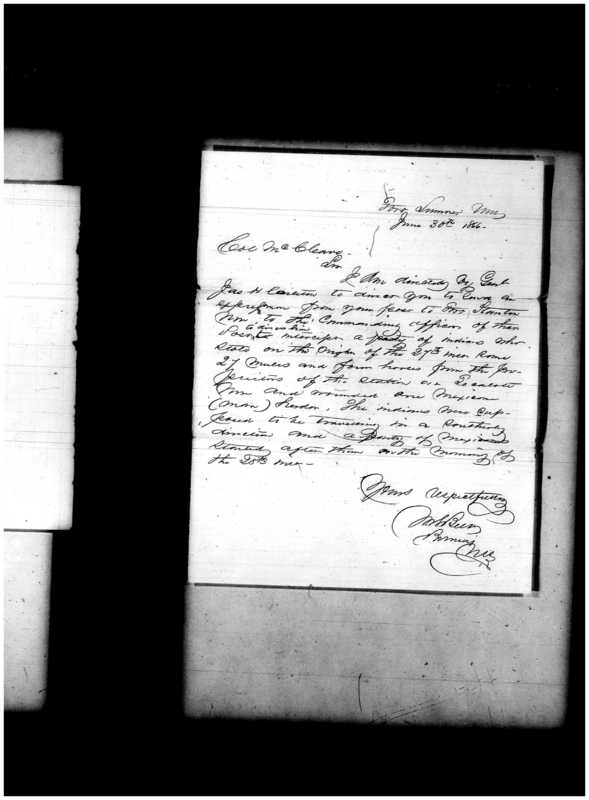 Fort Sumner N.M.
June 30th 1866.
Col McCleave.
Sir
I am directed by Genl
Jas H Carleton to direct you to send an
express from your post to Fort Stanton
N.M. to the Commanding officer of that
Post to intercept a party of indians who
to direct him
stole on the night of the 27th inst some
27 mules and four horses from the
of the
N.M. and wounded one Mexican
(man) herder. The indians were sup-
posed to be traveling in a Southerly
direction and a party of Mexicans
started after them on the morning of
the 28th inst-
Yours respectfully
N.M.